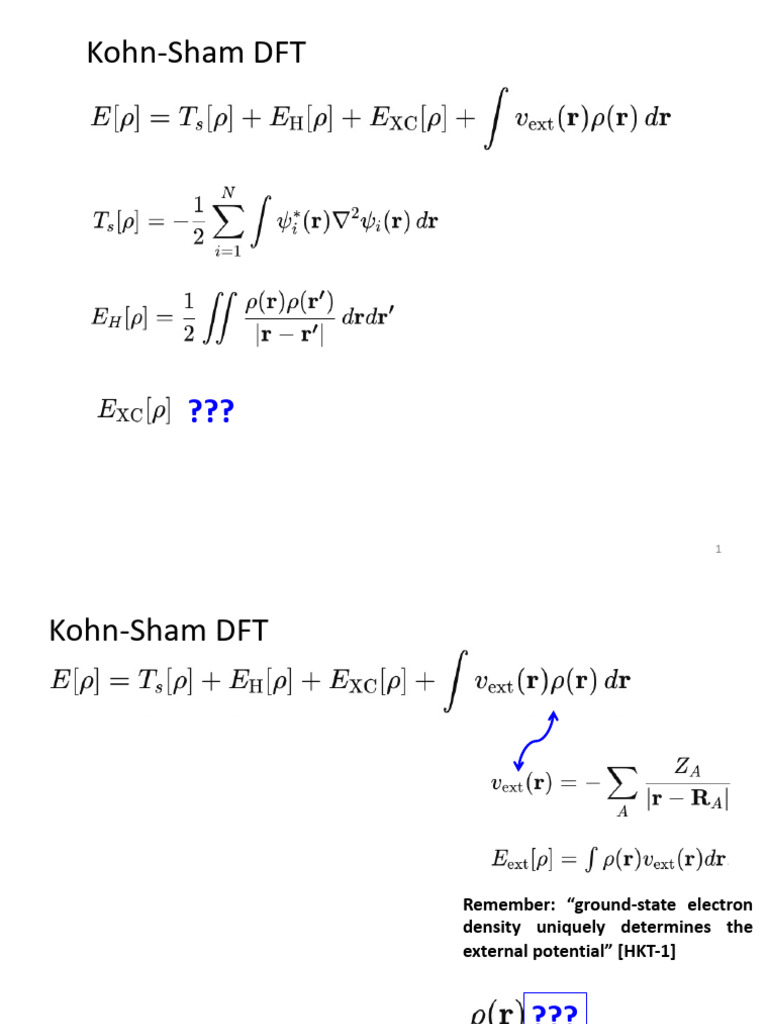 Kohn-Sham DFT
E[ρ] = T_s[ρ] + E_H[ρ] + E_XC[ρ] + ∫ v_ext(r)ρ(r) dr
T_s[ρ] = −1/2 ∑_{i=1}^{N} ∫ ψ_i^*(r)∇²ψ_i(r) dr
E_H[ρ] = 1/2 ∬ ρ(r)ρ(r′)/|r − r′| drdr′
E_XC[ρ] ???
1
Kohn-Sham DFT
E[ρ] = T_s[ρ] + E_H[ρ] + E_XC[ρ] + ∫ v_ext(r)ρ(r) dr
v_ext(r) = −∑_A Z_A/|r − R_A|
E_ext[ρ] = ∫ ρ(r)v_ext(r)dr
Remember: “ground-state electron
density uniquely determines the
external potential” [HKT-1]
ρ(r) ???